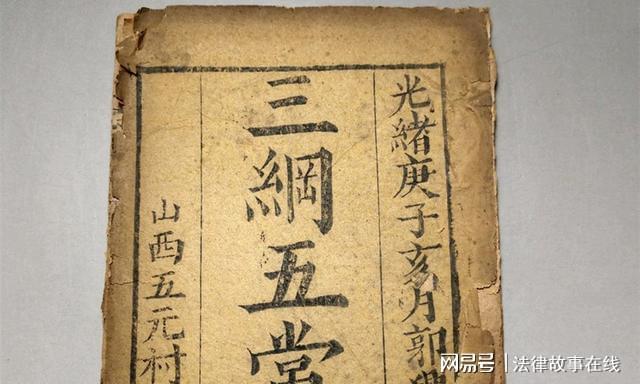 光緒庚子亥月郭
三綱五常
山西五元村
网易号 | 法律故事在线